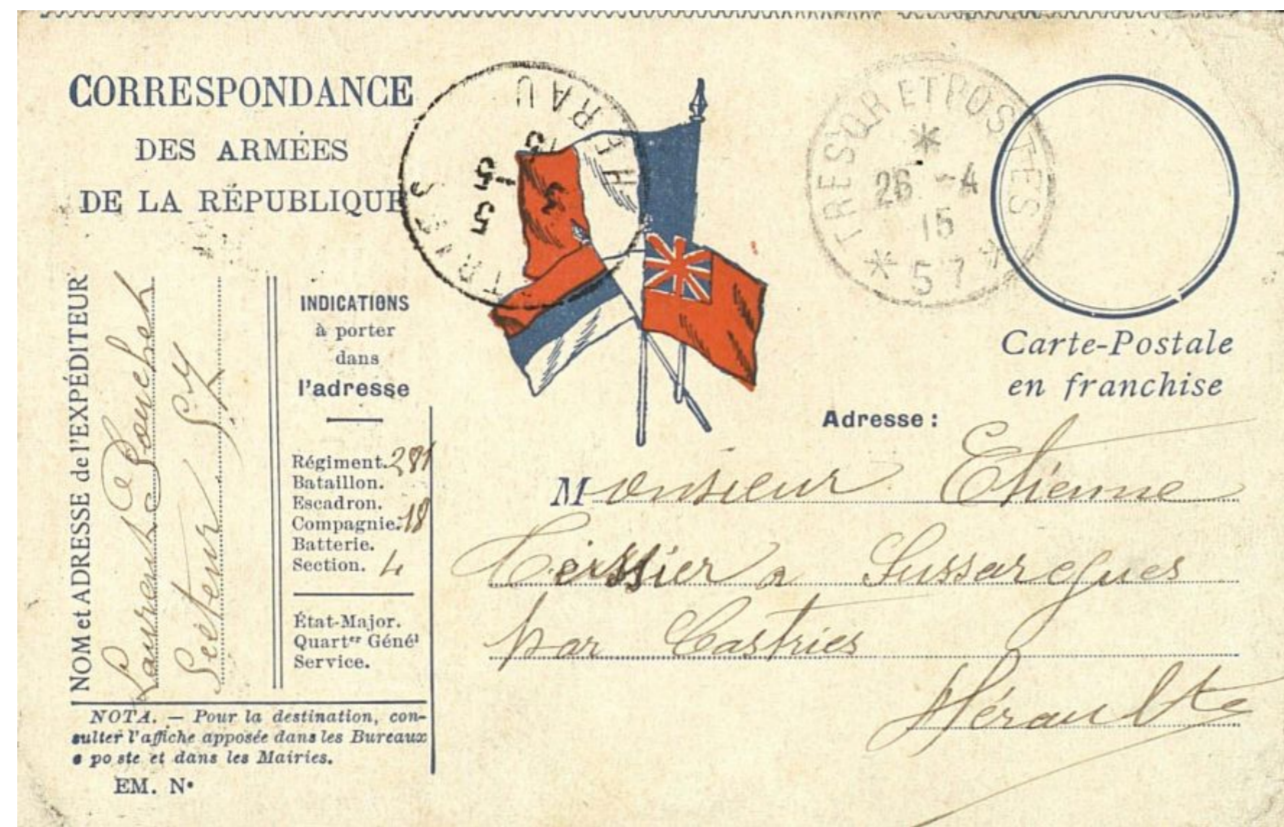 CORRESPONDANCE
DES ARMÉES
DE LA RÉPUBLIQUE
TRESOR ET POSTES
*
26 -4
15
* 57 *
HERAU
5 -5
15
Carte-Postale
en franchise
NOM et ADRESSE de l'EXPÉDITEUR
Laurent Pouchet
Secteur 57
INDICATIONS
à porter
dans
l'adresse
Régiment. 281
Bataillon.
Escadron.
Compagnie. 18
Batterie.
Section. 4
État-Major.
Quartᵉʳ Généˡ
Service.
NOTA. — Pour la destination, con-
sulter l'affiche apposée dans les Bureaux
e poste et dans les Mairies.
EM. N•
Adresse :
Monsieur Etienne
Teissier a Sussargues
par Castries
Hérault